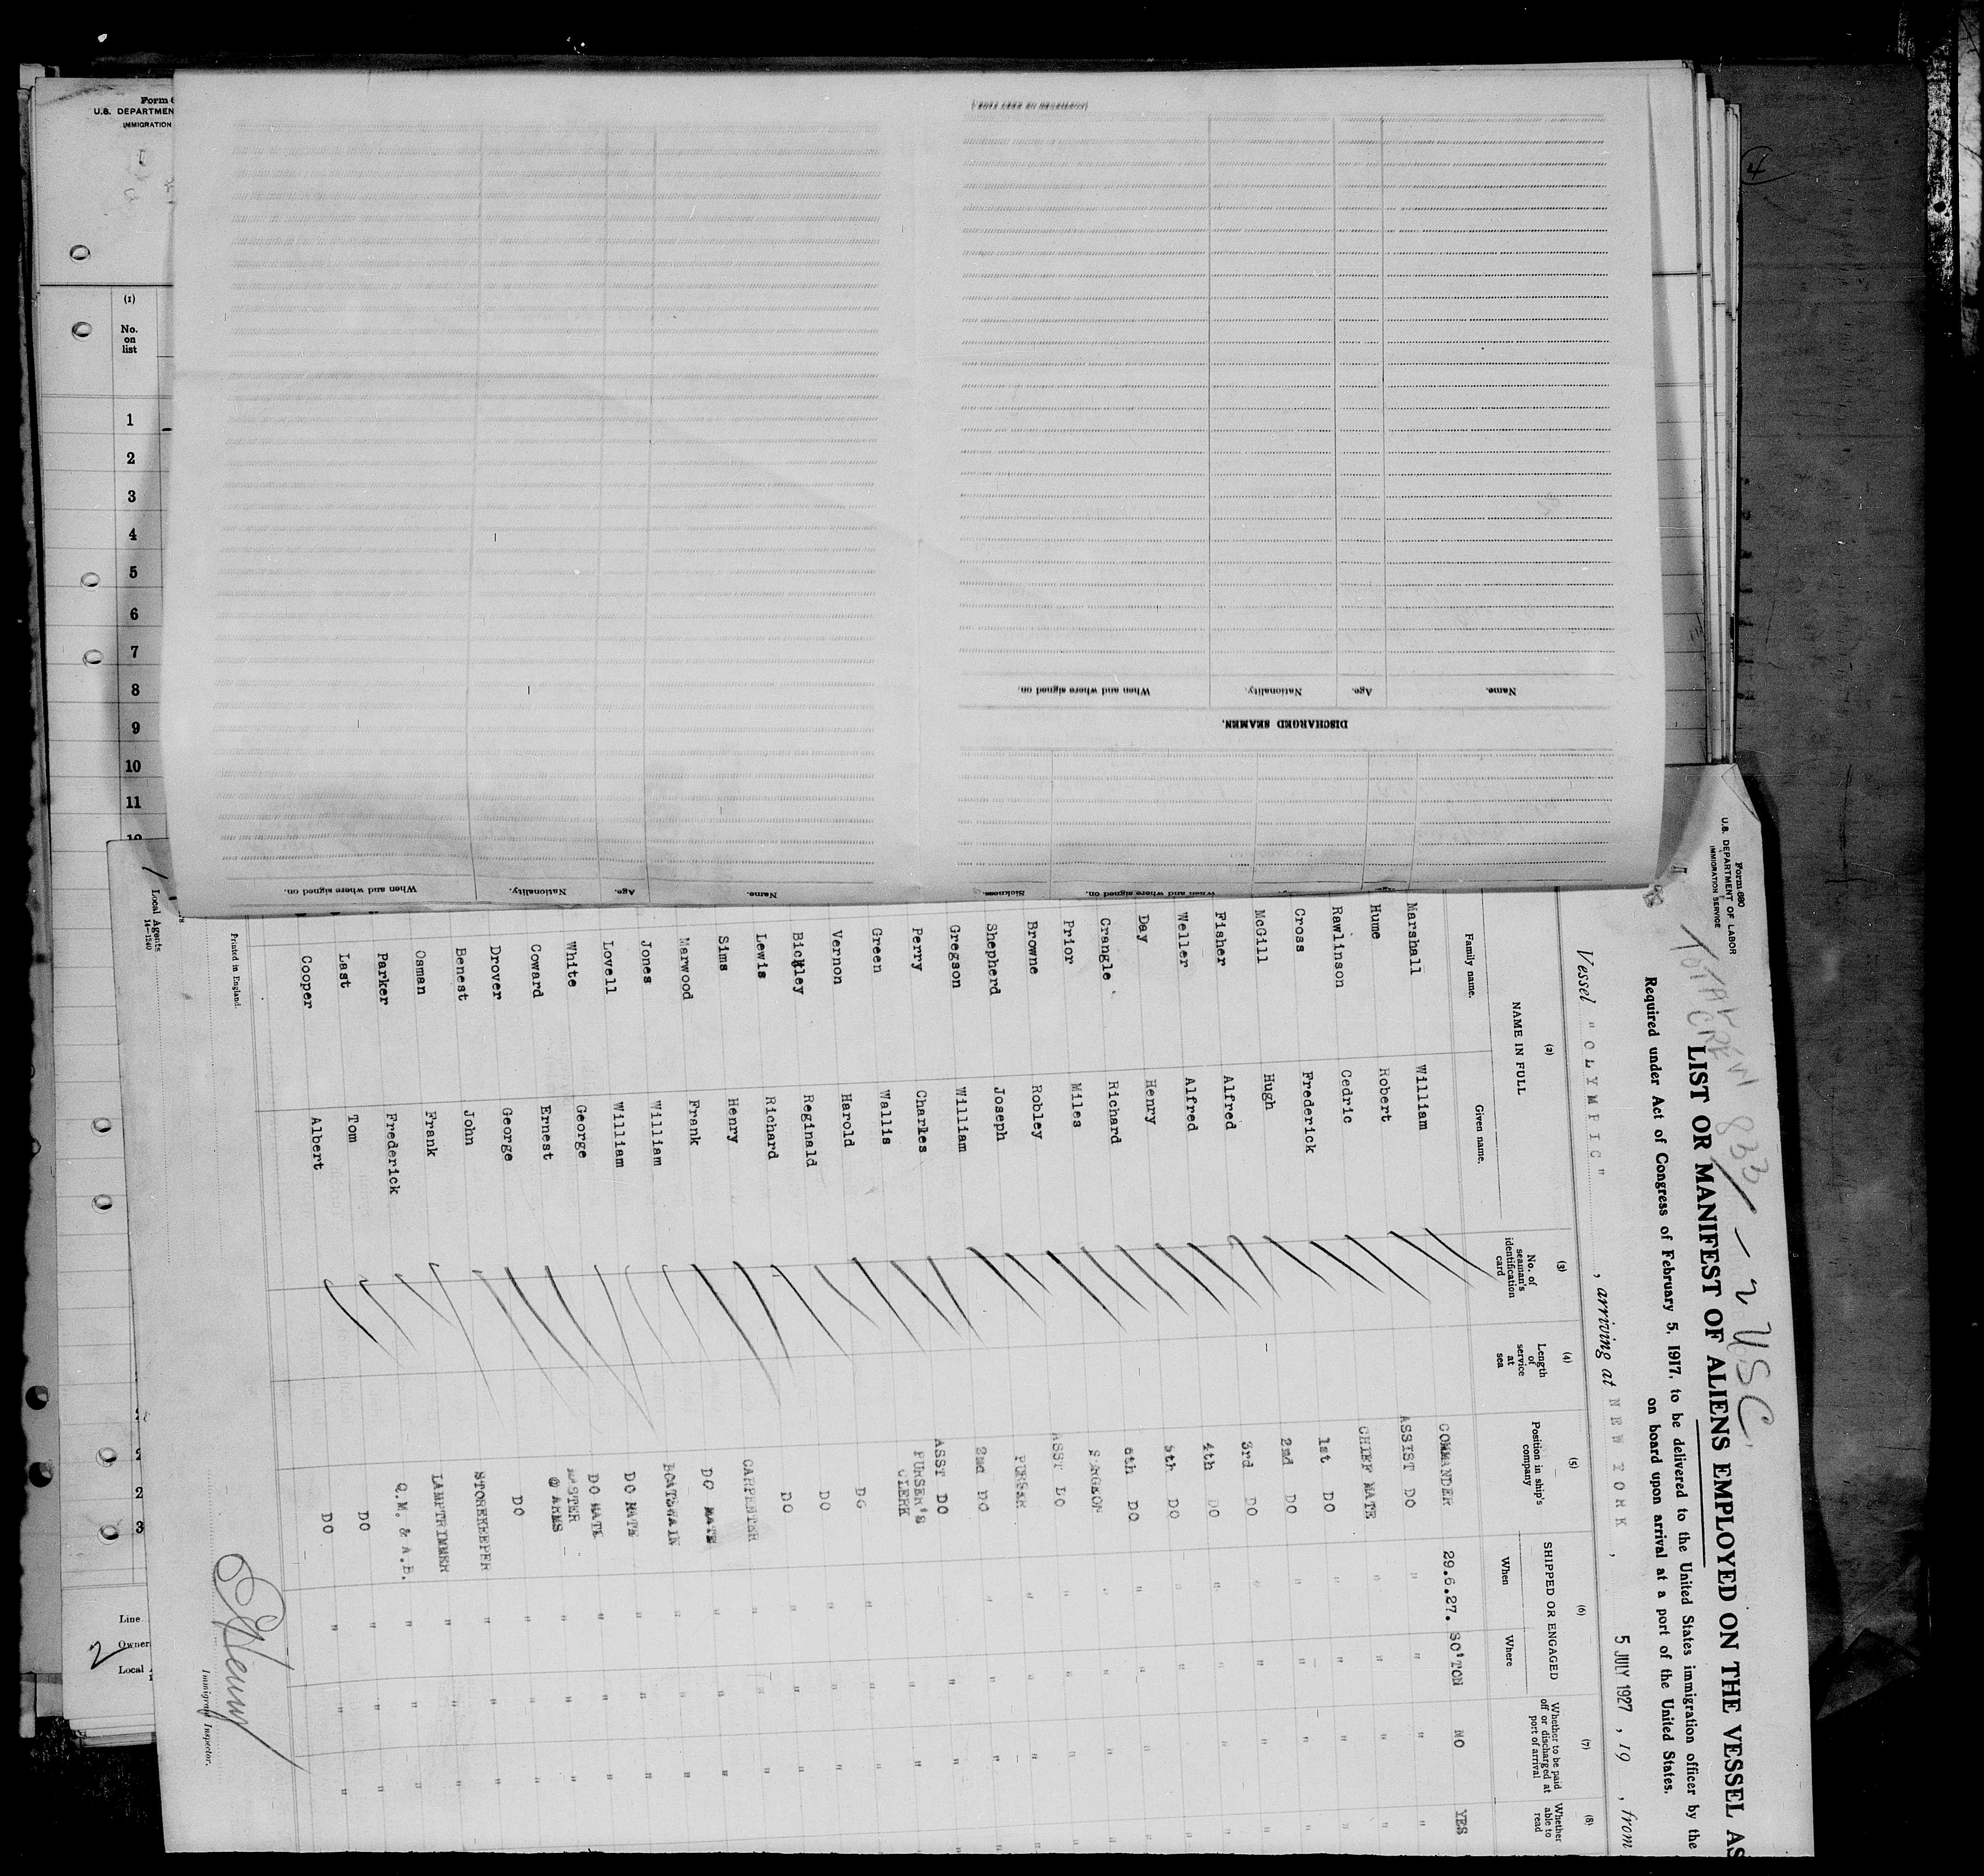 Form 6
U.S. DEPARTMEN
IMMIGRATION
(1)
No.
on
list
1
2
3
4
5
6
7
8
9
10
11
Line
Owner
Local
2
4
When and where signed on.
Nationality.
Age.
Name.
DISCHARGED SEAMEN.
When and where signed on.
Nationality.
Age.
Name.
Sickness
When and where signed on.
Form 680
U.S. DEPARTMENT OF LABOR
IMMIGRATION SERVICE
TOTAL CREW 833 - 2 USC
LIST OR MANIFEST OF ALIENS EMPLOYED ON THE VESSEL AS
Required under Act of Congress of February 5, 1917, to be delivered to the United States immigration officer by the
on board upon arrival at a port of the United States.
Vessel "OLYMPIC", arriving at NEW YORK, 5 JULY 1927, 19 , from
(2) (3) (4) (5) (6) (7) (8)
NAME IN FULL
Family name. Given name.
No. of seaman's identification card
Length of service at sea
Position in ship's company
SHIPPED OR ENGAGED
When Where
Whether to be paid off or discharged at port of arrival
Whether able to read
COMMANDER 29.6.27. SO'TON NO YES
Marshall William ASSIST DO " " " "
Hume Robert CHIEF MATE " " " "
Rawlinson Cedric 1st DO " " " "
Cross Frederick 2nd DO " " " "
McGill Hugh 3rd DO " " " "
Fisher Alfred 4th DO " " " "
Weller Alfred 5th DO " " "
Day Henry 6th DO " " " "
Crangle Richard SURGEON " " " "
Prior Miles ASST DO " " " "
Browne Robley PURSER " " " "
Shepherd Joseph 2nd DO " " " "
Gregson William ASST DO " " "
Perry Charles PURSER'S CLERK " " "
Green Wallis DO " " " "
Vernon Harold DO " " " "
Bickley Reginald DO " " "
Lewis Richard CARPENTER " " "
Sims Henry DO MATE " " "
Marwood Frank BOATSWAIN " " "
Jones William DO MATE " " "
Lovell William DO MATE " " "
White George MASTER @ ARMS " " "
Coward Ernest DO " " "
Drover George STOREKEEPER " " "
Benest John LAMPTRIMMER " " "
Osman Frank Q.M. & A.B. " " "
Parker Frederick DO " " "
Last Tom DO " " "
Cooper Albert
Printed in England.
Immigrant Inspector.
Local Agents
14—1240